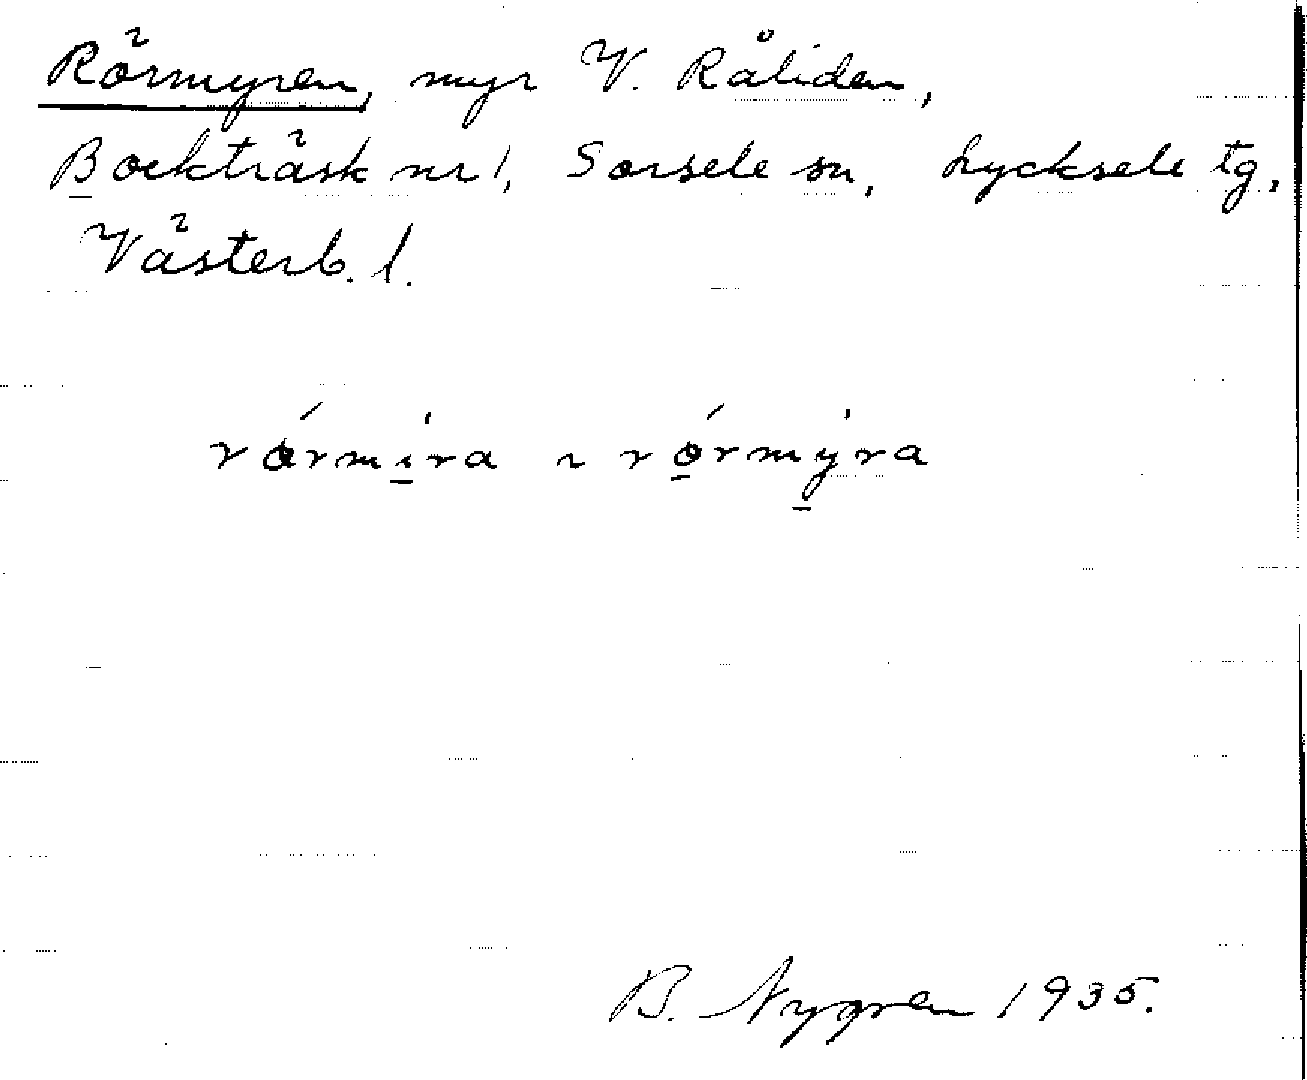 Rörmyren, myr V. Råliden,
Bockträsk nr 1, Sorsele sn, Lycksele tg,
Västerb. l.
rórmi̠ra ~ ró̠rmy̠ra
B. Nygren 1935.